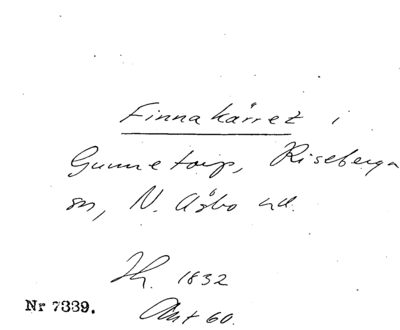 Finnakärret i
Gunnetorp, Riseberga
sn, N. Åsbo hd.
Hr. 1832
Akt 60.
Nr 7339.